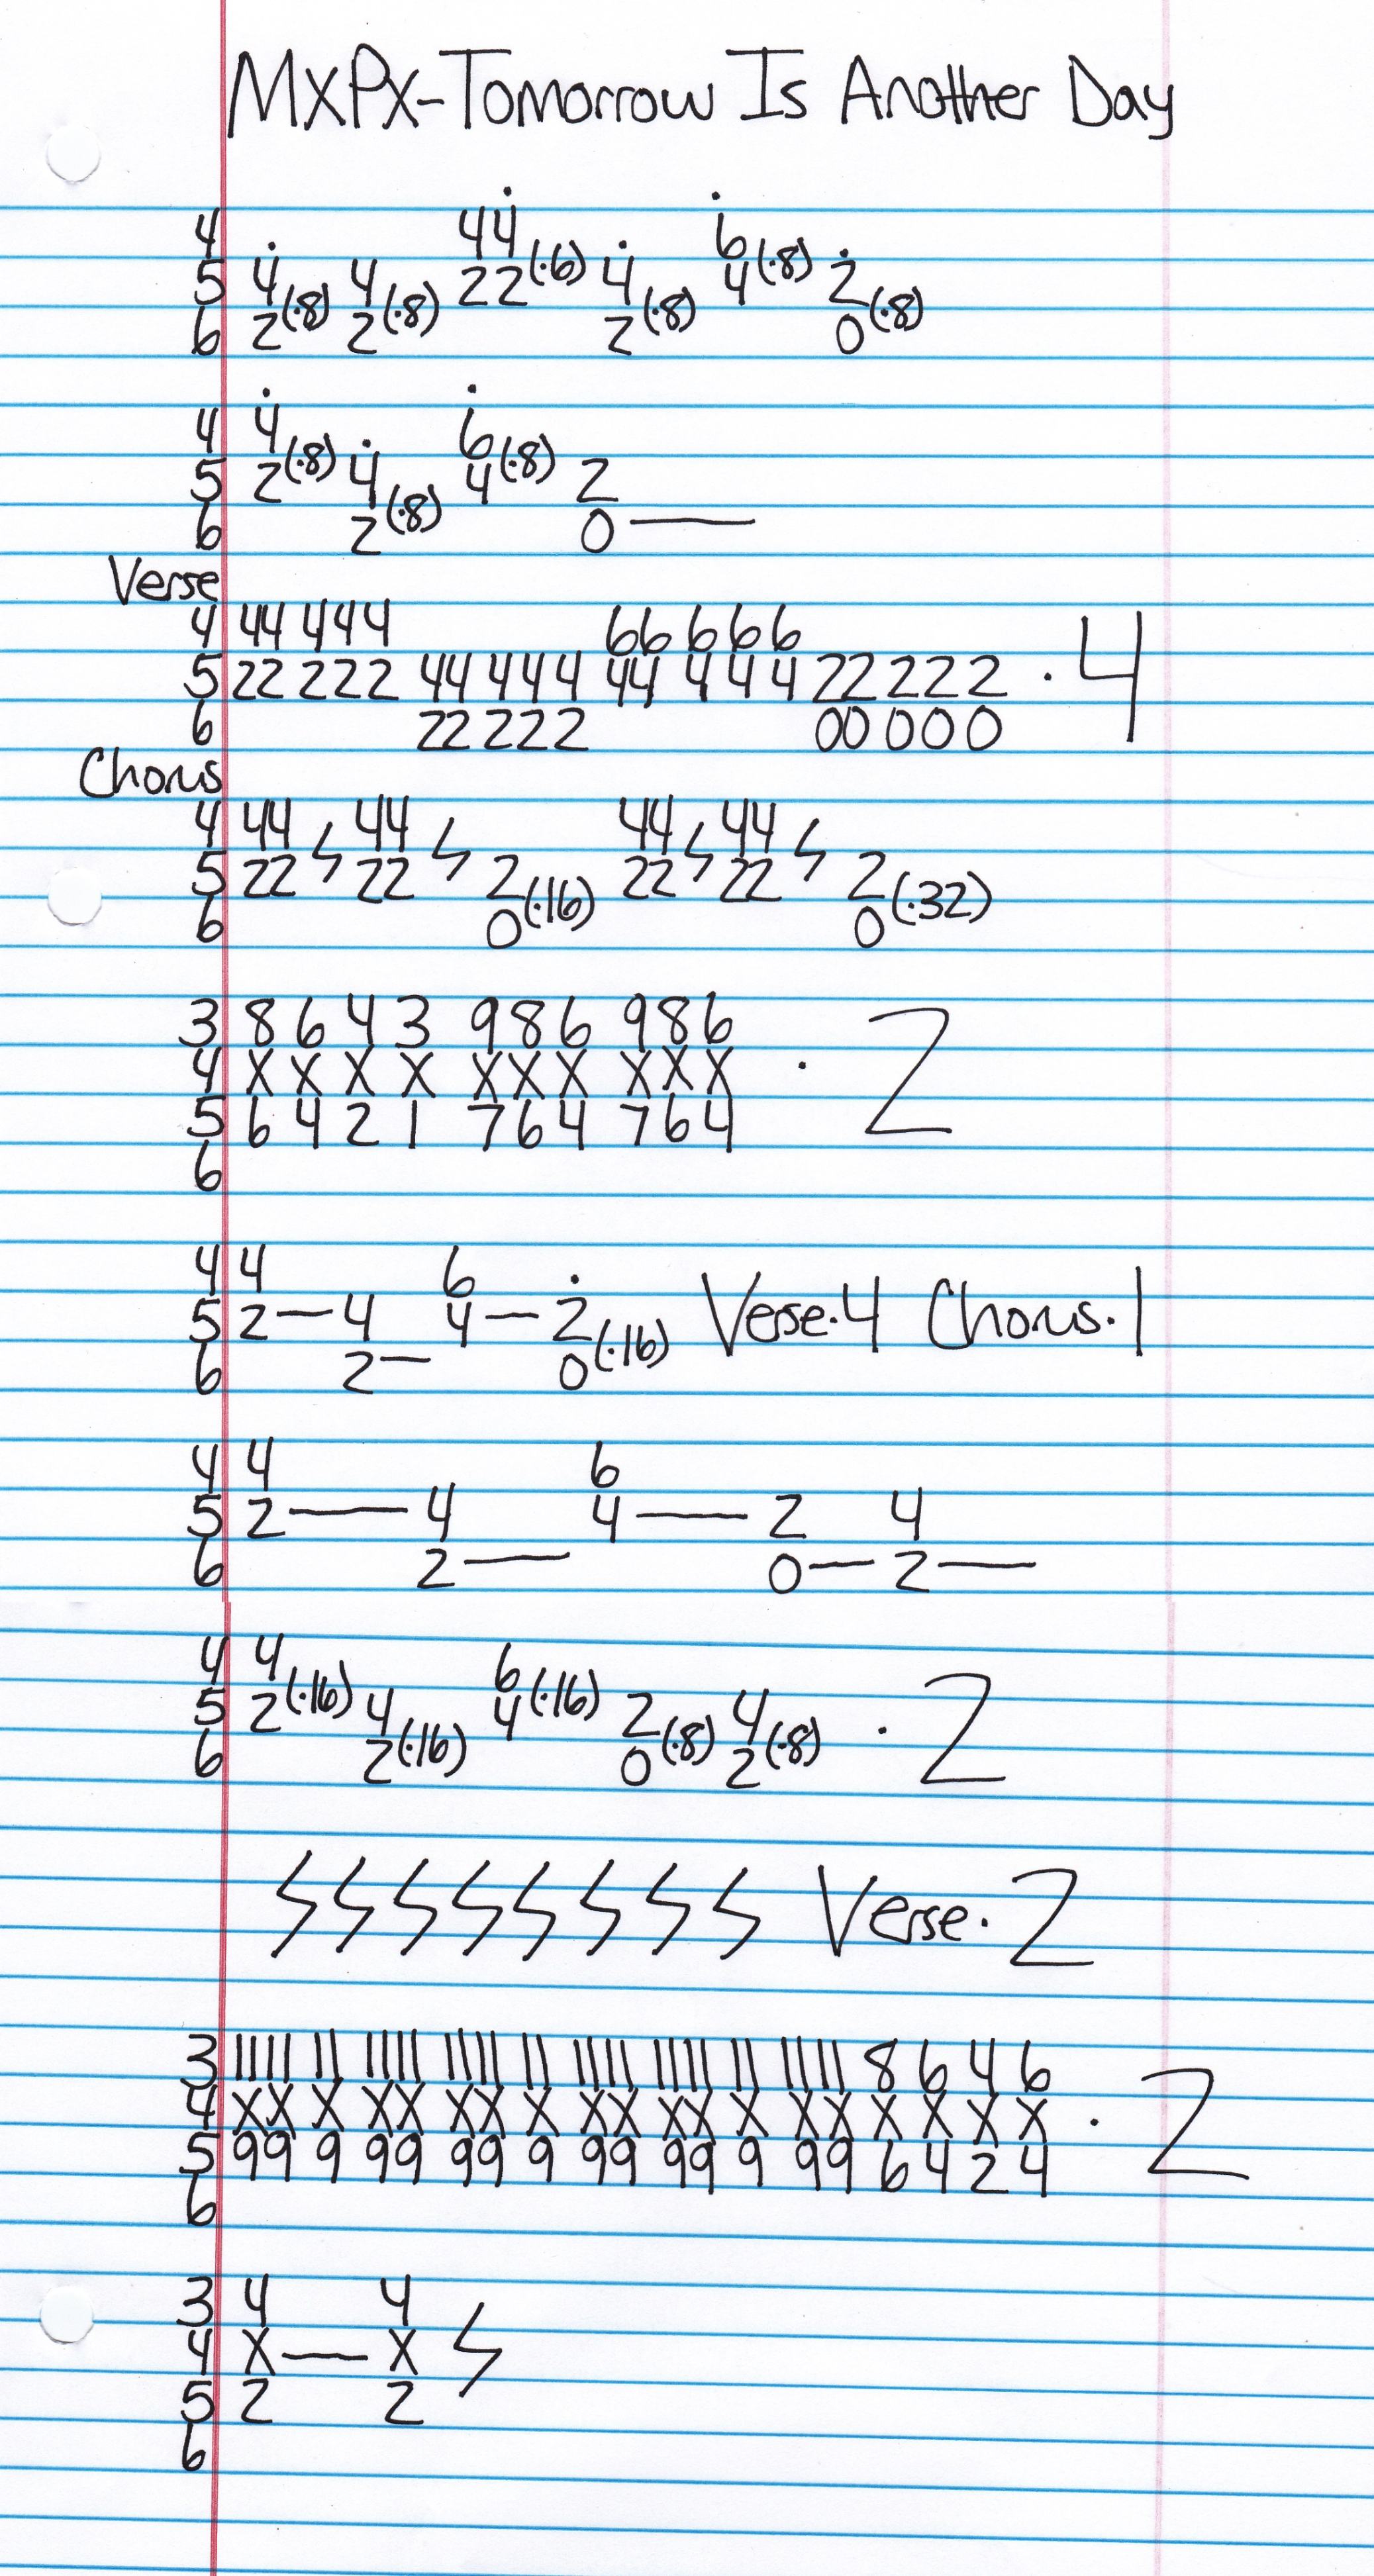 MXPX-Tomorrow Is Another Day
4 44 6
5 4(·8) 4(·8) 22(·6) 4 4(·8) 2
6 2 2 2(·8) 0(·8)
4 4 6
5 2(·8) 4 4(·8) 2
6 2(·8) 0—
Verse
4 44 444 66 666
5 22 222 44 444 44 444 22 222 · 4
6 22 222 00 000
Chorus
4 44 44 44 44
5 22 22 2 22 22 2
6 0(·16) 0(·32)
3 8 6 4 3 9 8 6 9 8 6
4 X X X X X X X X X X · 2
5 6 4 2 1 7 6 4 7 6 4
6
4 4 6
5 2 — 4 4 — 2 Verse·4 Chorus·1
6 2 — 0(·16)
4 4 6
5 2 — 4 4 — 2 4
6 2 — 0 — 2 —
4 4 6
5 2(·16) 4 4(·16) 2 4 · 2
6 2(·16) 0(·8) 2(·8)
Verse·2
3 11 11 11 11 11 11 11 11 11 11 11 11 11 11 11 8 6 4 6
4 XX X XX XX X XX XX X XX X X X X · 2
5 99 9 99 99 9 99 99 9 99 6 4 2 4
6
3 4 4
4 X — X
5 2 2
6